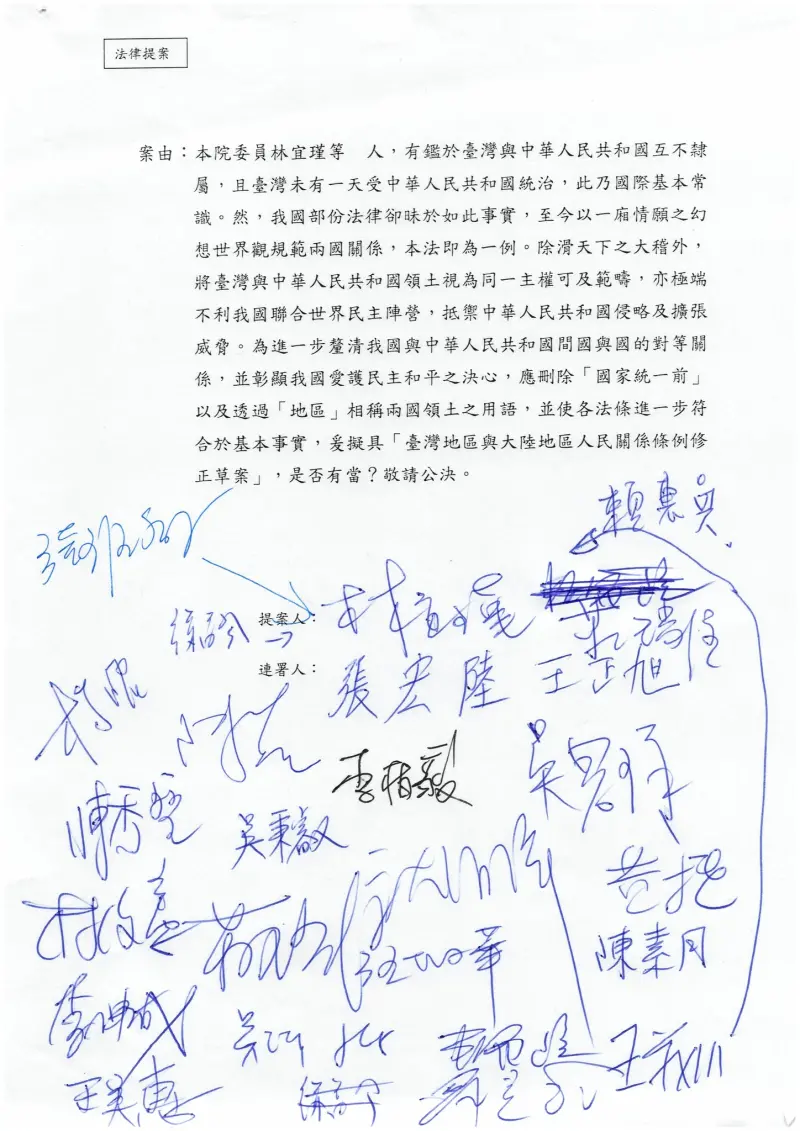 法律提案
案由：本院委員林宜瑾等　人，有鑑於臺灣與中華人民共和國互不隸
屬，且臺灣未有一天受中華人民共和國統治，此乃國際基本常
識。然，我國部份法律卻昧於如此事實，至今以一廂情願之幻
想世界觀規範兩國關係，本法即為一例。除滑天下之大稽外，
將臺灣與中華人民共和國領土視為同一主權可及範疇，亦極端
不利我國聯合世界民主陣營，抵禦中華人民共和國侵略及擴張
威脅。為進一步釐清我國與中華人民共和國間國與國的對等關
係，並彰顯我國愛護民主和平之決心，應刪除「國家統一前」
以及透過「地區」相稱兩國領土之用語，並使各法條進一步符
合於基本事實，爰擬具「臺灣地區與大陸地區人民關係條例修
正草案」，是否有當？敬請公決。
賴惠員
提案人：林宜瑾
連署人：張宏陸 王正旭
李柏毅
陳秀寳 吳秉叡
陳素月
王美惠 王義川